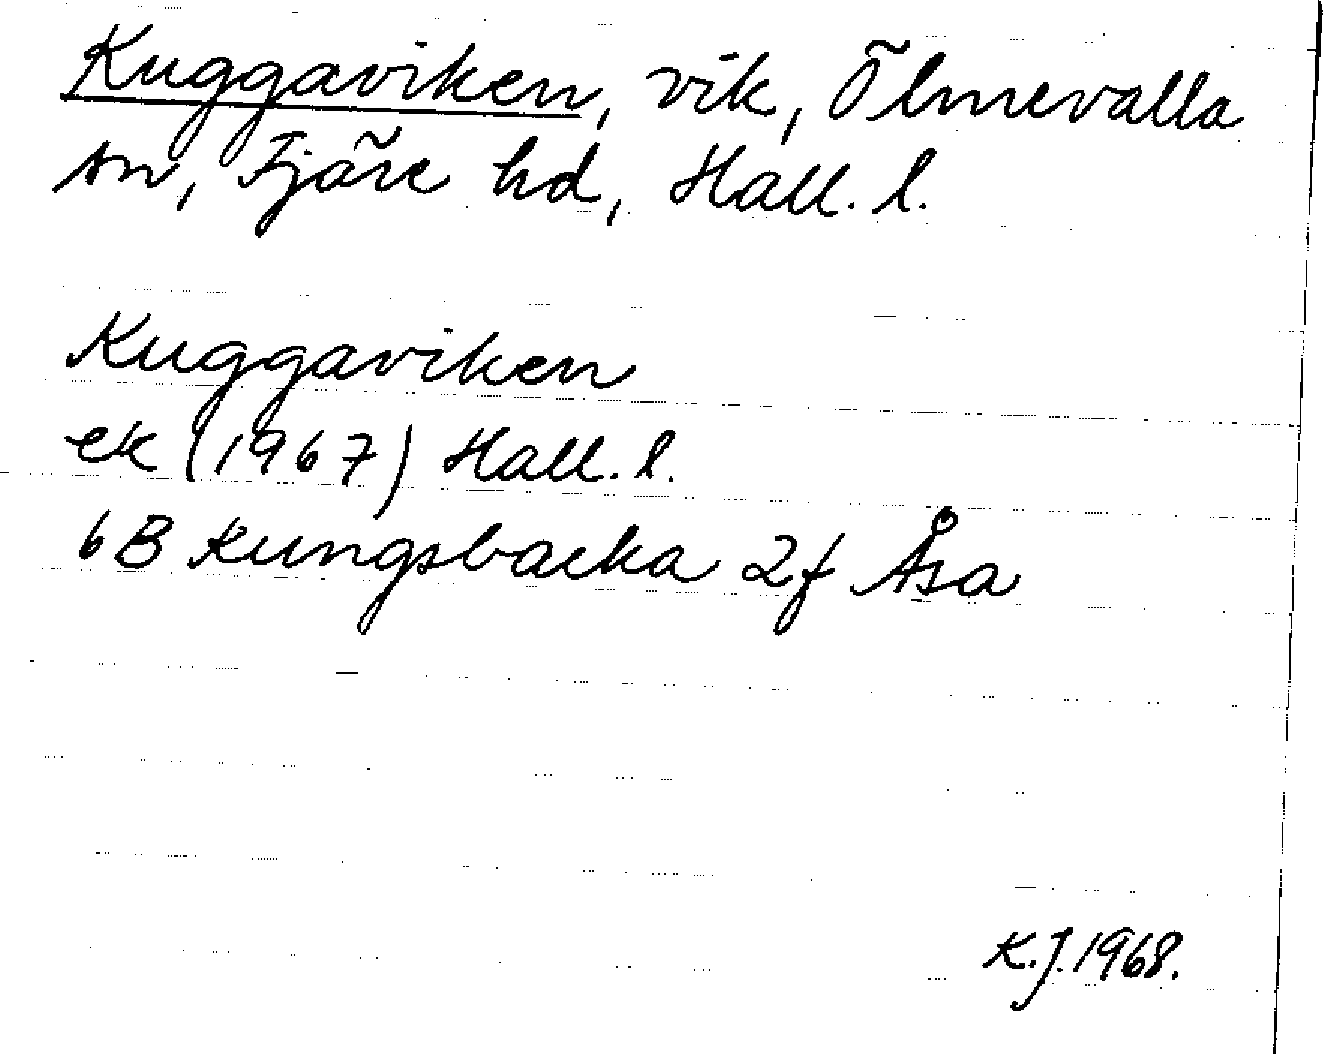 Kuggaviken, vik, Ölmevalla
sn, Fjäre hd, Hall. l.
Kuggaviken
ek (1967) Hall. l.
6B Kungsbacka 2f Åsa
K.J. 1968.